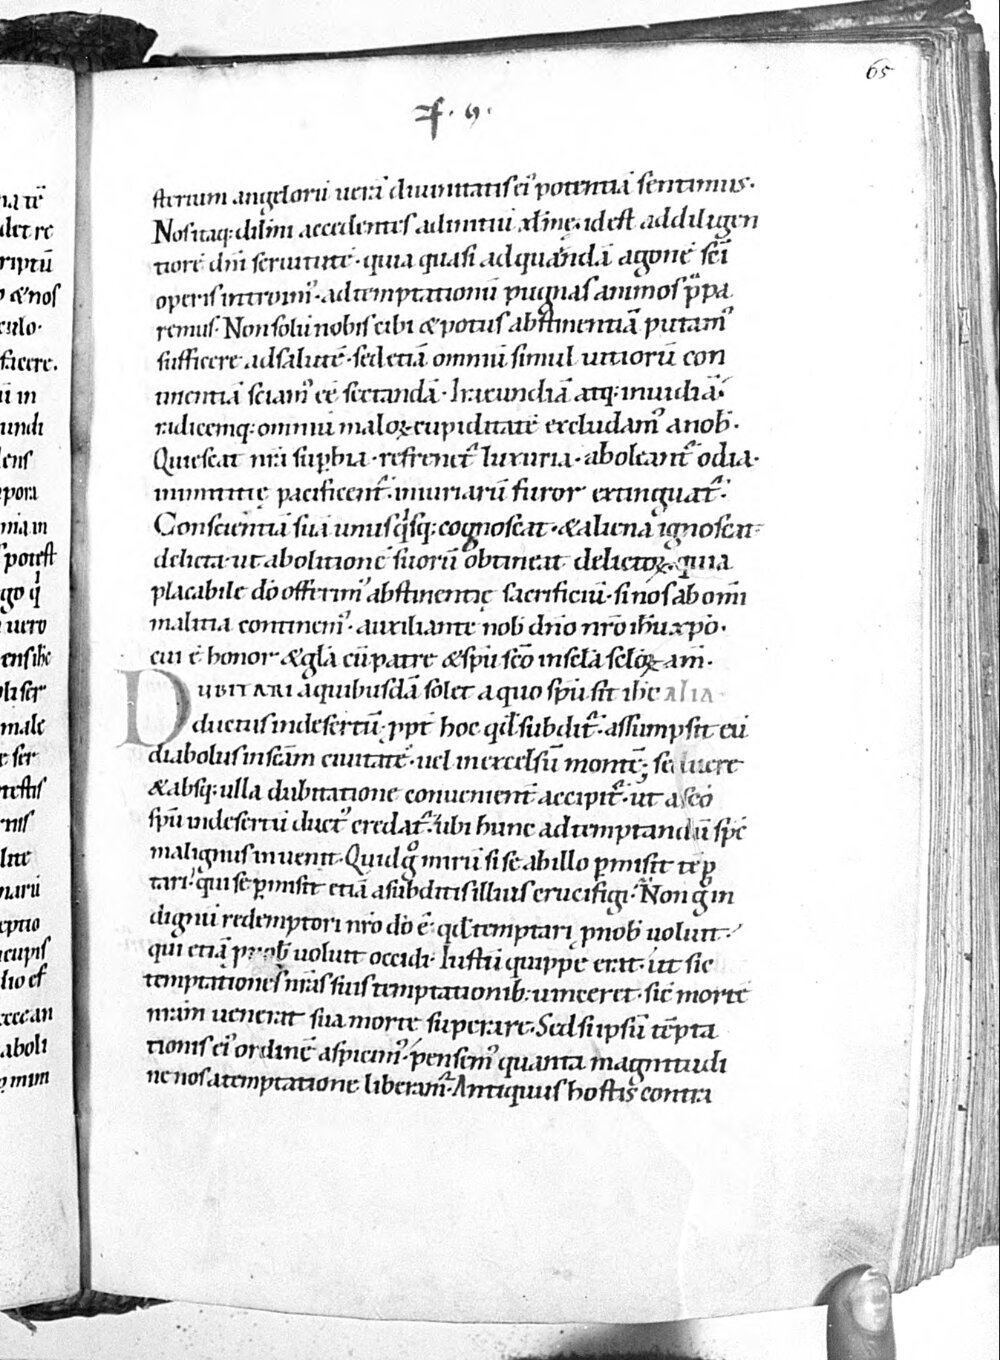 65
f. 9.
sterium angelorū uerā diuinitatis ei᾽ potentiā sentimus.
Nos itaq: dilm̄i accedentes ad initiū xl̄mę. id est ad diligen
tiorē dn̄i seruitutē. quia quasi ad quandā agonē sc̄i
operis introim᾽. ad temptationū pugnas animos p̄pa
remus. Non solū nobis cibi & potus abstinentiā putam᾽
sufficere ad salutē. sed etiā omniū simul uitiorū con
tinentiā sciam᾽ eē sectandā. Iracundiā atq: inuidiā.
radicemq: omniū maloꝝ cupiditatē excludam᾽ a nob̄.
Quiescat nr̄a sup̄bia. refrenet᾽ luxuria. aboleant᾽ odia.
inimicitię pacificent᾽. iniuriarū furor extinguat᾽.
Conscientiā suā unusq̇sq: cognoscat. & aliena ignoscat
delicta. ut abolitionē suorū obtineat delictoꝝ. quia
placabile dō offerim᾽ abstinentię sacrificiū. si nos ab om̄i
malitia continem᾽. auxiliante nob̄ dn̄o nr̄o ih̄u xp̄o.
cui ē honor & gl̄a cū patre & sp̄u sc̄o in sc̄la sc̄loꝝ am̄.
DUBITARI a quibusdā solet a quo sp̄u sit ih̄c ALIA
ductus in desertū. ppt̄ hoc qd̄ subdit᾽. assumpsit eū
diabolus in sc̄am ciuitatē. uel in excelsū montē; sed uere
& absq: ulla dubitatione conuenient̄ accipit᾽. ut a sc̄o
sp̄u in desertū duct᾽ credat᾽. ubi hunc ad temptandū sp̄c
malignus inuenit. Quid g̊ mirū si se ab illo p̄misit tēp
tari. qui se p̄misit etiā a subditis illius crucifigi. Non g̊ in
dignū redemptori nr̄o dō ē. qd̄ temptari p nob̄ uoluit.
qui etiā p nob̄ uoluit occidi. Iustū quippe erat. ut sic
temptationes nr̄as suis temptationib: uinceret. sic mortē
nr̄am uenerat sua morte superare. Sed si ipsū tēpta
tionis ei᾽ ordinē aspicim᾽. pensem᾽ quanta magnitudi
ne nos a temptatione liberam᾽. Antiquus hostis contra